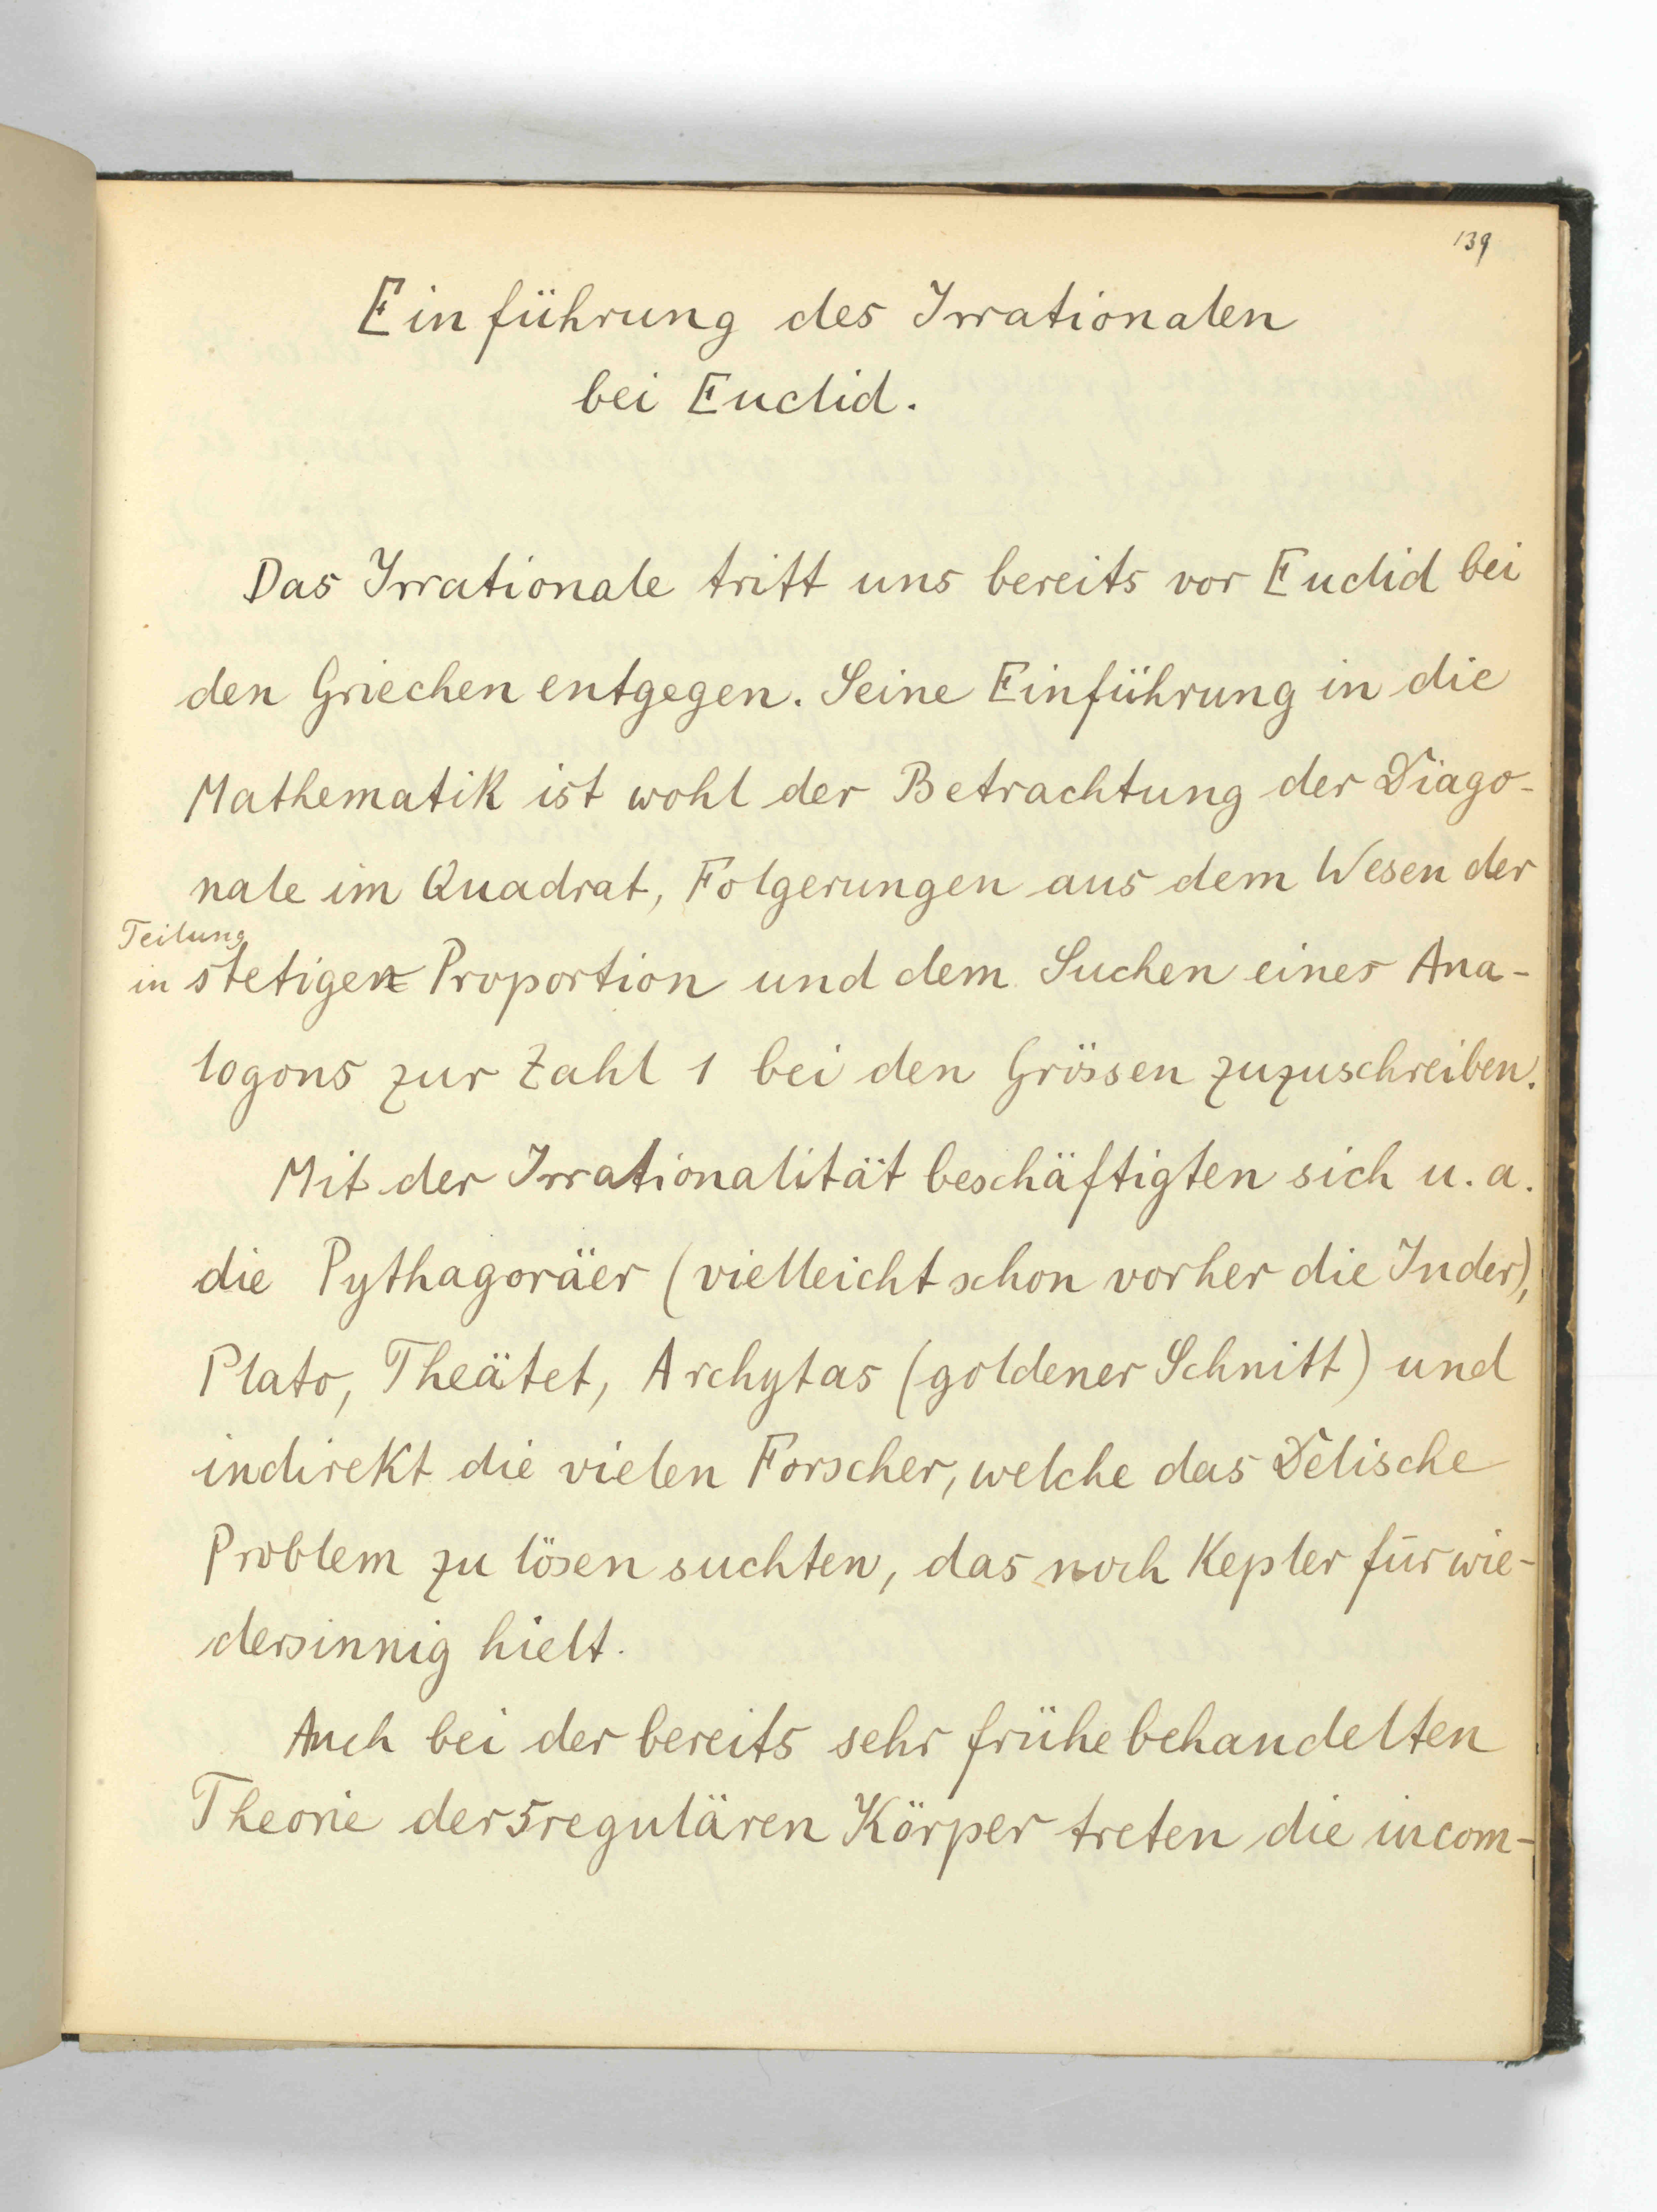 139
Einführung des Irrationalen
bei Euclid.
Das Irrationale tritt uns bereits vor Euclid bei
den Griechen entgegen. Seine Einführung in die
Mathematik ist wohl der Betrachtung der Diago-
nale im Quadrat, Folgerungen aus dem Wesen der
Teilung
in stetiger Proportion und dem Suchen eines Ana-
logons zur Zahl 1 bei den Grössen zuzuschreiben.
Mit der Irrationalität beschäftigten sich u. a.
die Pythagoräer (vielleicht schon vorher die Inder),
Plato, Theätet, Archytas (goldener Schnitt) und
indirekt die vielen Forscher, welche das Delische
Problem zu lösen suchten, das noch Kepler für wie-
dersinnig hielt.
Auch bei der bereits sehr frühe behandelten
Theorie der 5 regulären Körper treten die incom-